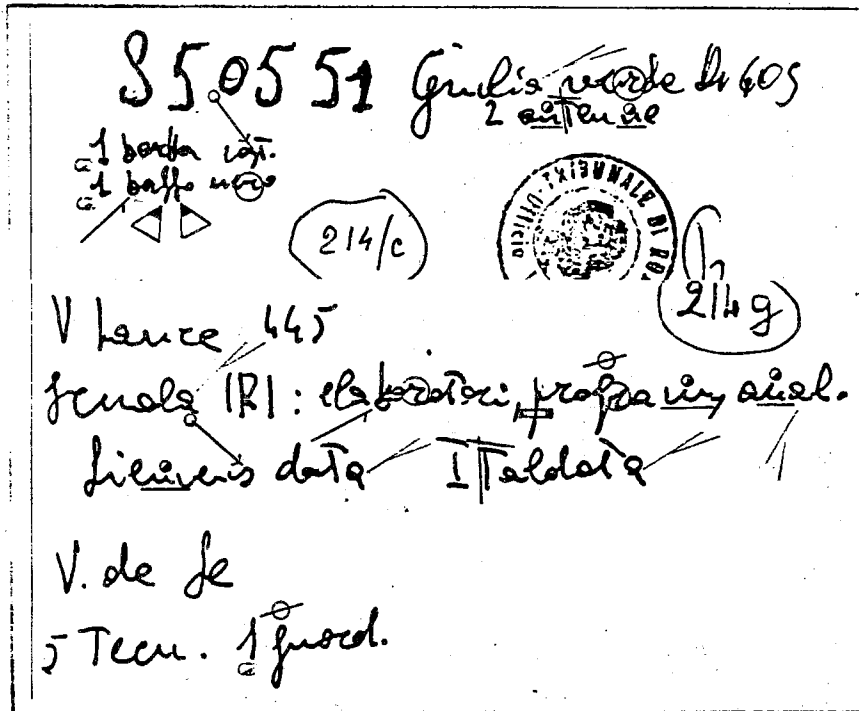 S50551 Giulia verde Dr 609
2 antenne
1 barba cast.
1 baffo nero
214/c
TRIBUNALE DI ROMA
214 g
V 445
Scuola IRI: elaboratori, programm, anal.
data Italdata
V. de
5 Tecn. 1 guard.